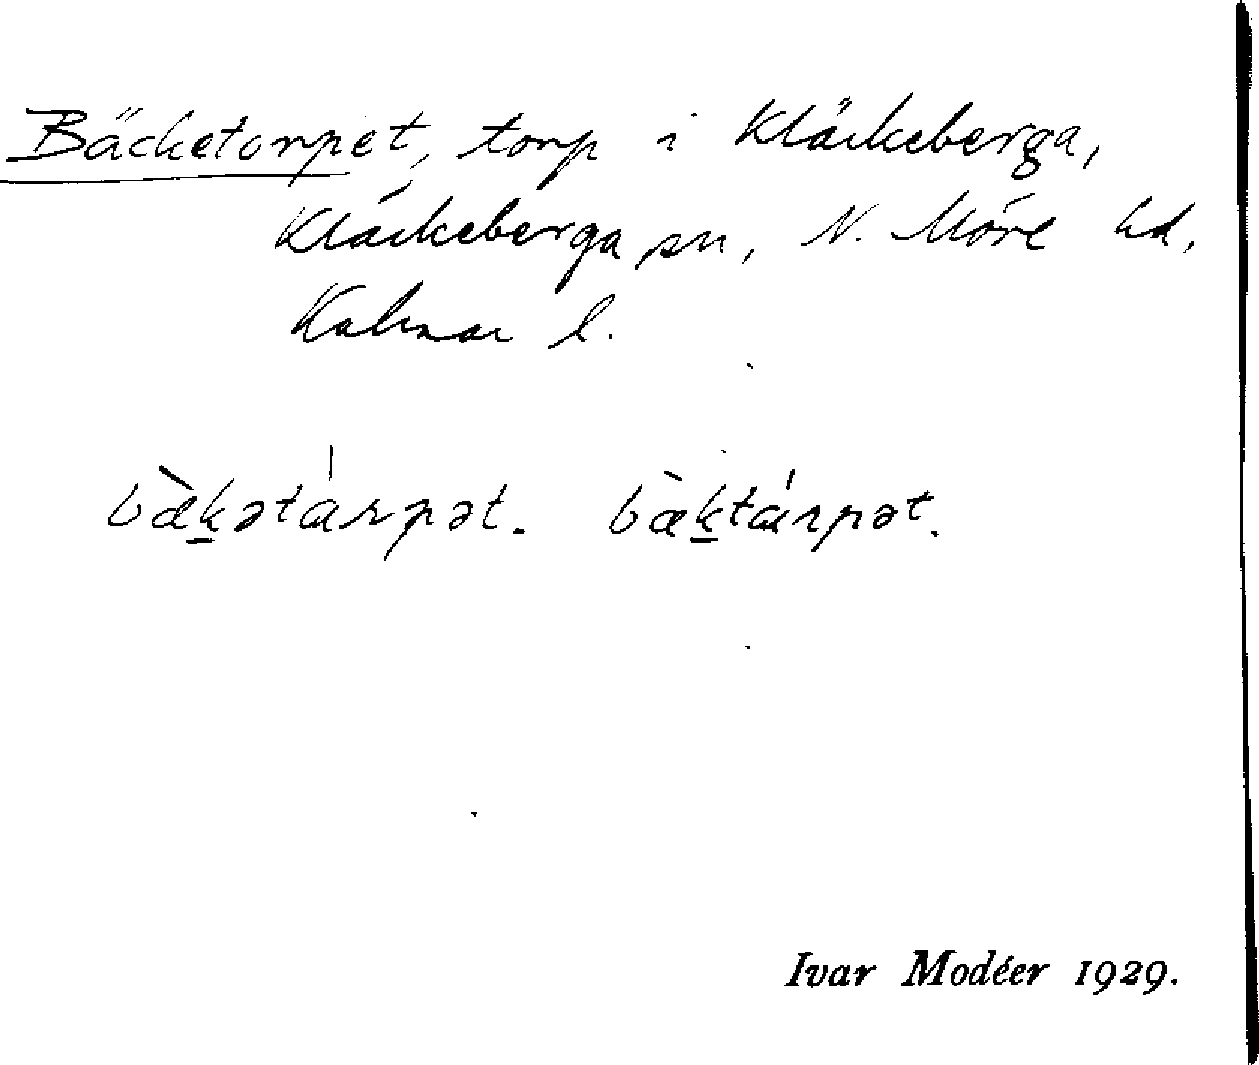 Bäcketorpet, torp i Kläckeberga,
Kläckeberga sn, N. Möre hd,
Kalmar l.
bæ̀k̲ətárpət. bæ̀k̲tárpət.
Ivar Modéer 1929.